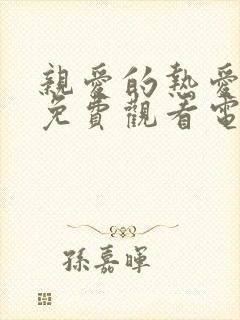 親愛的熱愛
免費觀看電
孫嘉暉